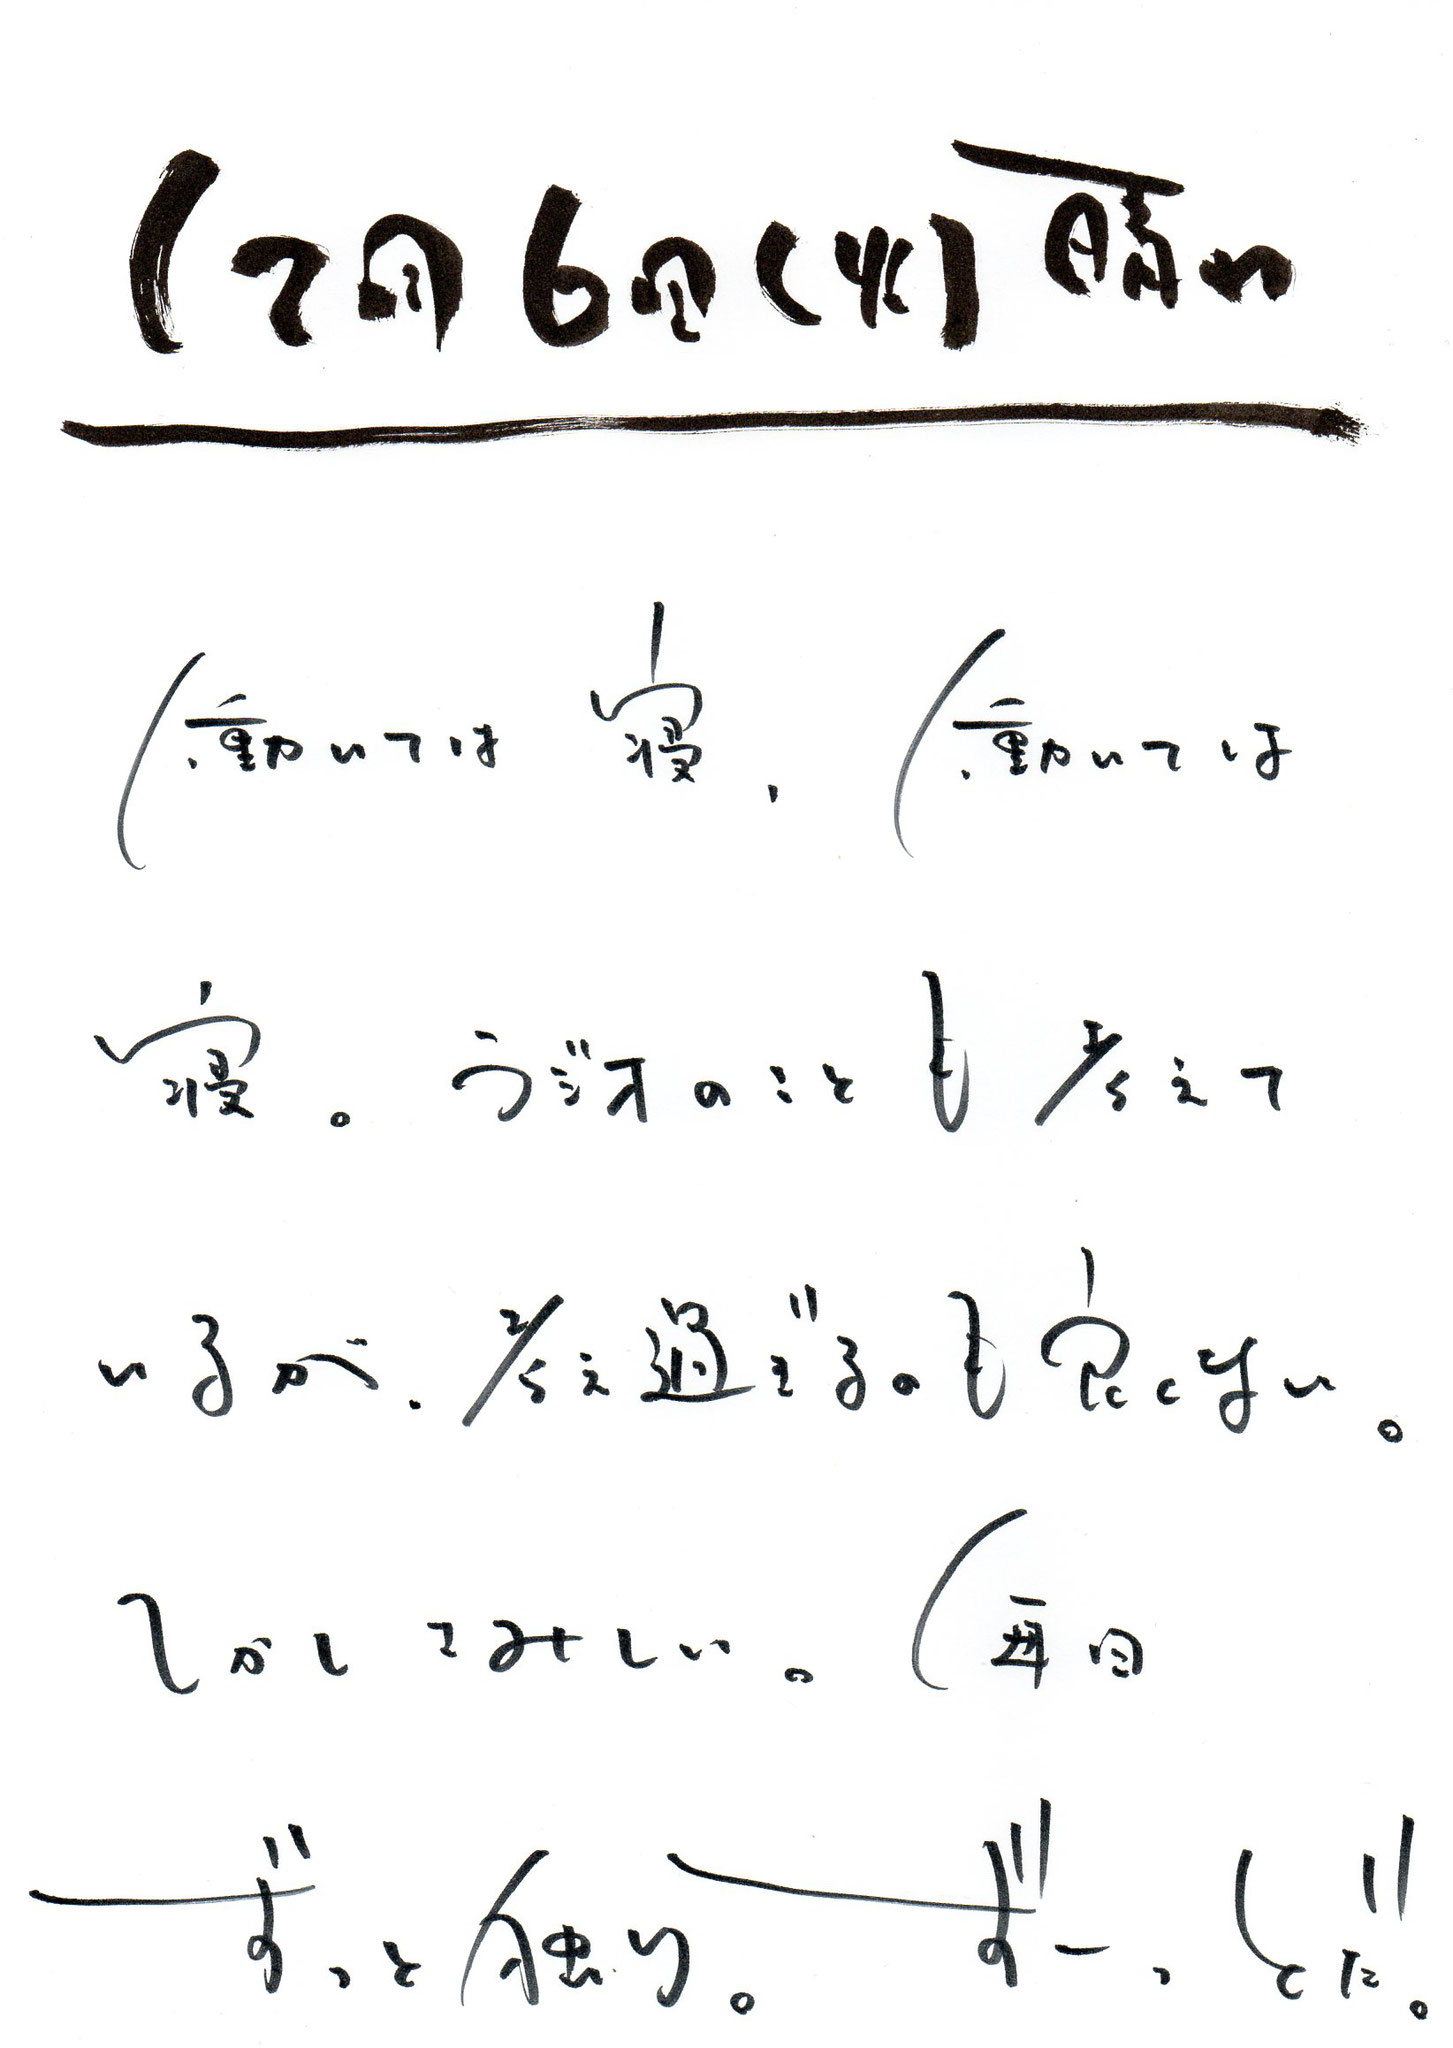 12月6日(火)晴れ
働いては寝、働いては
寝。ラジオのことも考えて
いるが、考え過ぎるのも良くない。
しかしてみしい。毎日
ずっと独り。ずーっとだ。